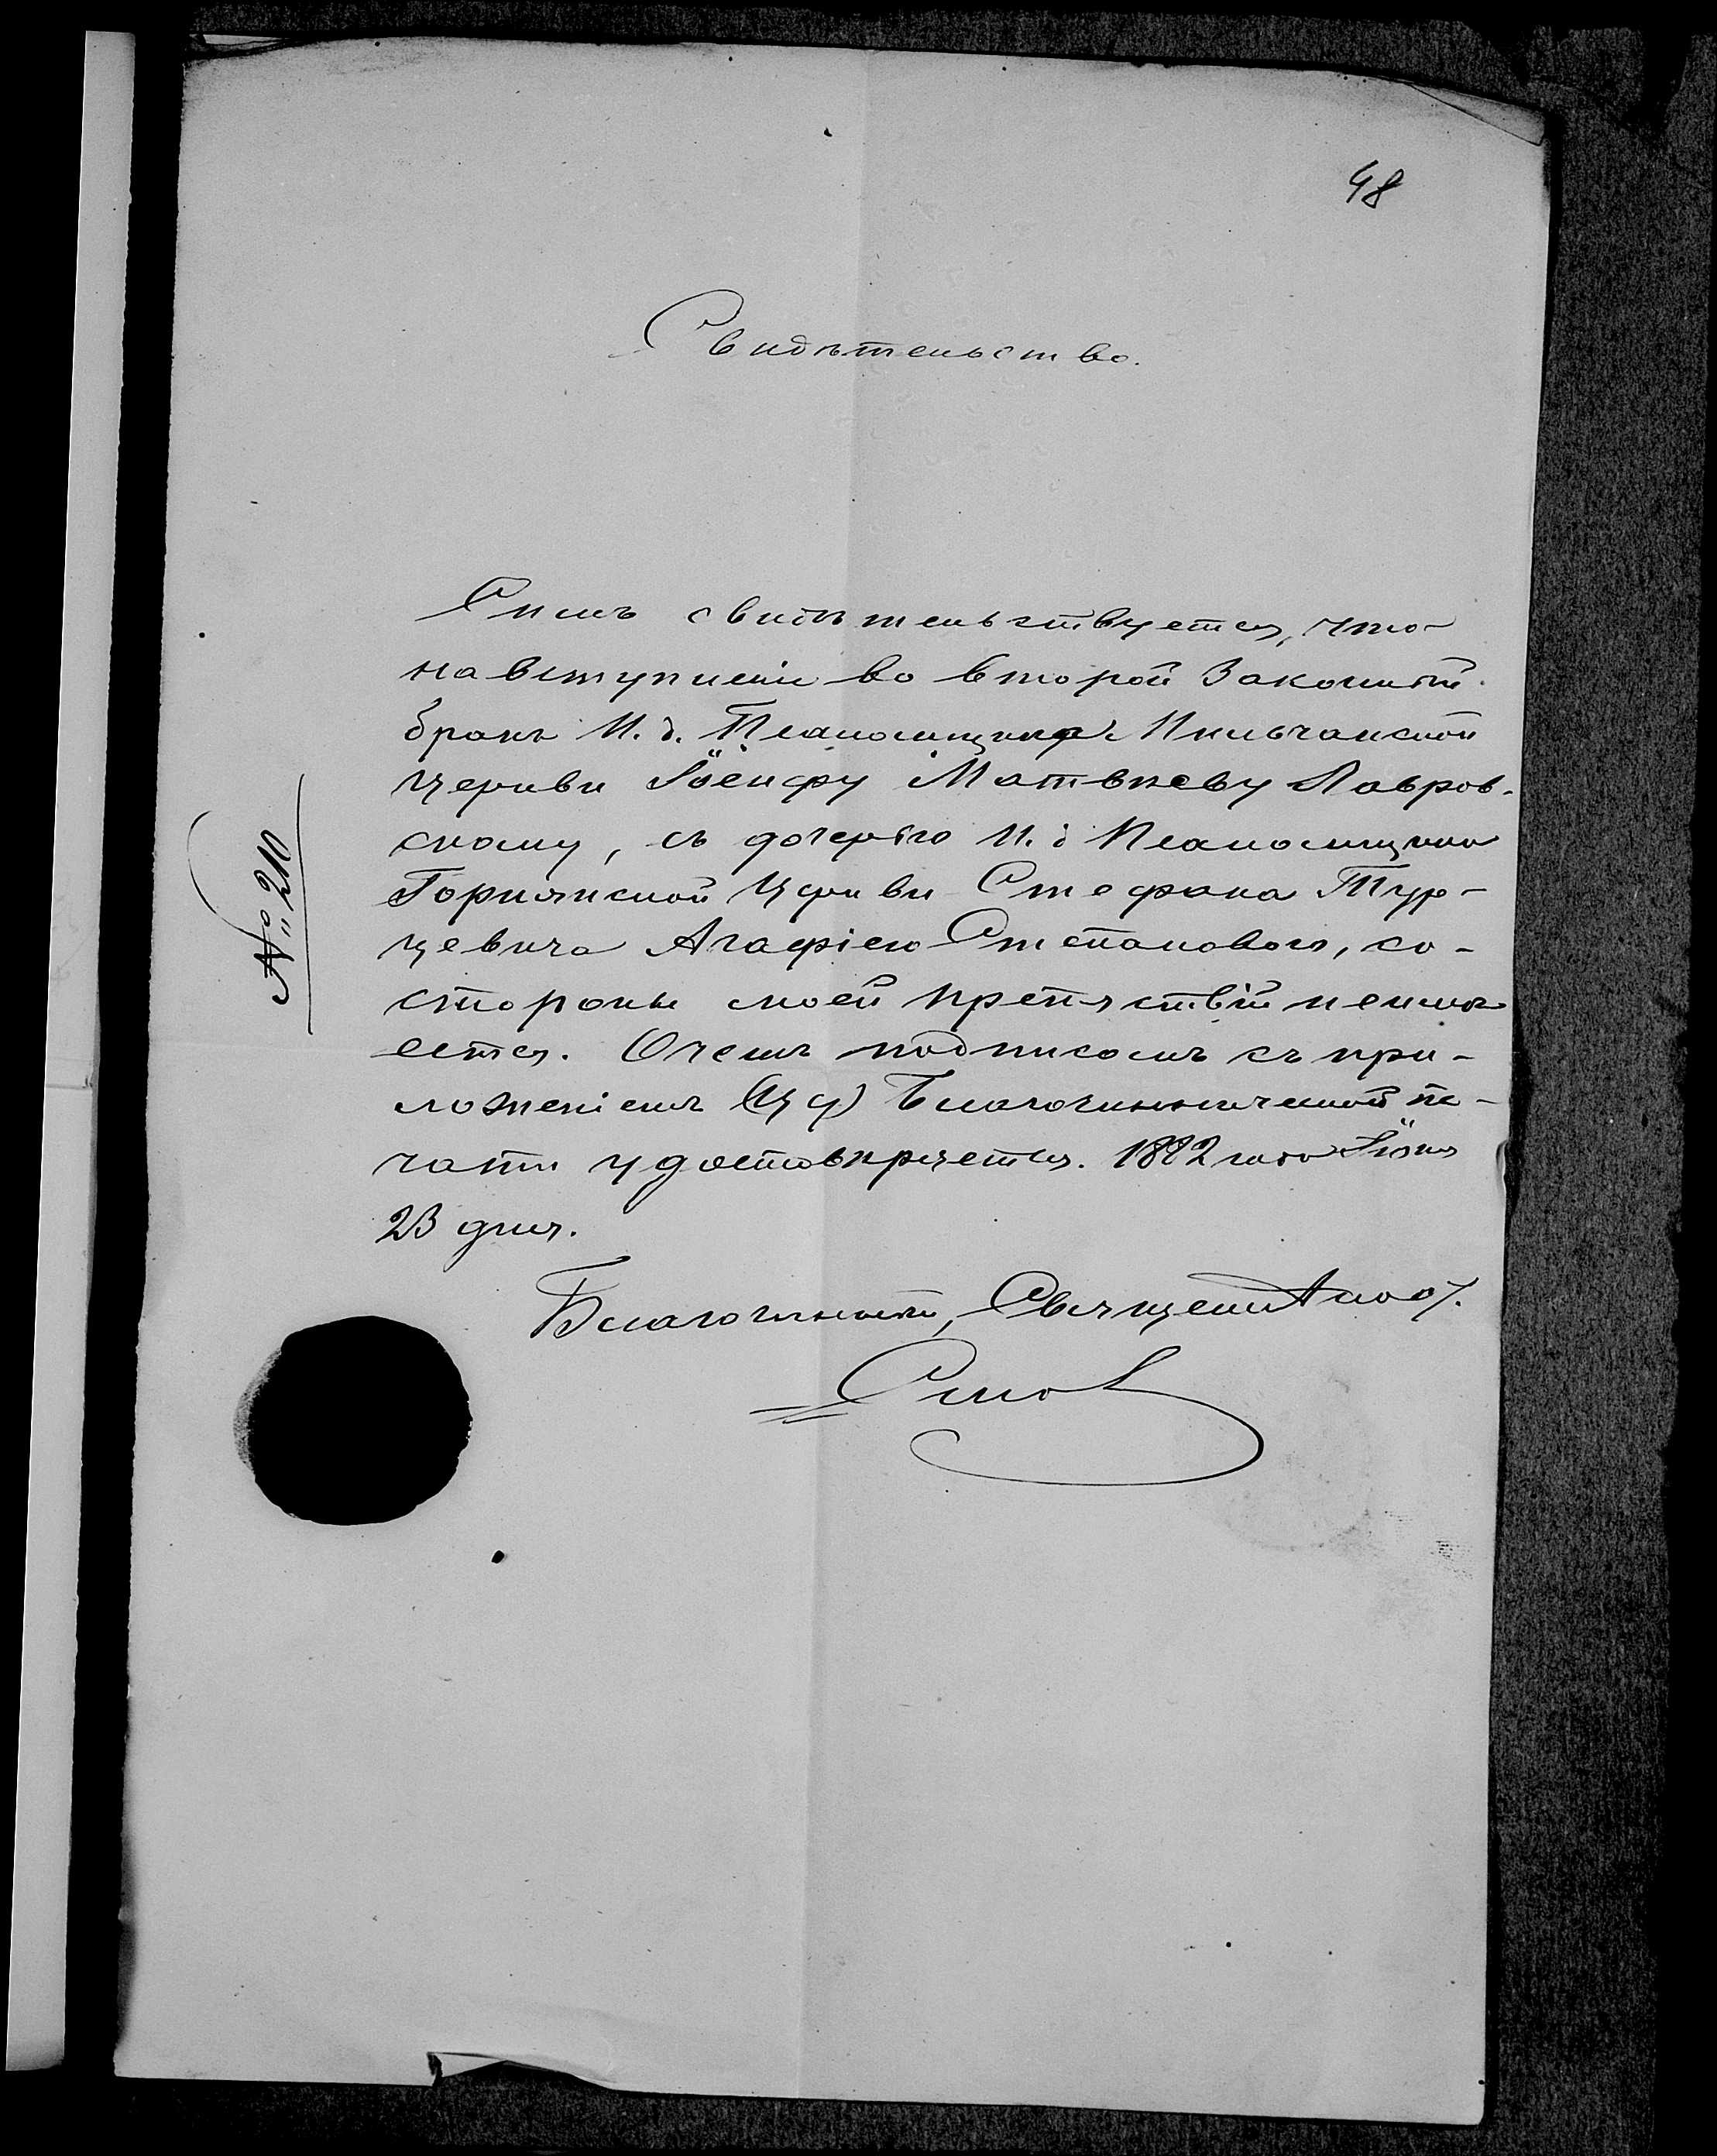 48
Свидѣтельство.
№ 210
Симъ свидѣтельствуется, что
на вступленіе во второй Законный
бракъ И. д. Псаломщика Мильчанской
Церкви Іосифу Матвѣеву Лавров-
скому, съ дочерью И. д Псаломщика
Горнякской Церкви Стефана Тур-
цевича Агафіею Степановою, со-
стороны моей препятствій неимѣ
ется. О чемъ подписомъ съ при-
ложеніемъ Благочиннической пе-
чати удостовѣряется. 1882 года Іюня
23 дня.
Благочинный, Священникъ